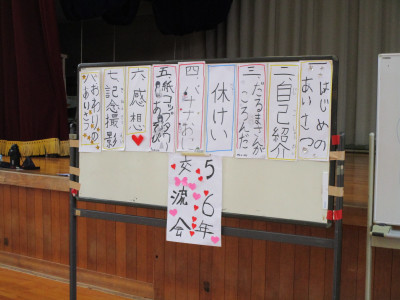 一はじめの
あいさつ
二自己紹介
三だるまさんが
ころんだ
休けい
四
五紙コップ
六感想
七記念撮影
八おわりの
あいさつ
5・6年
交流会